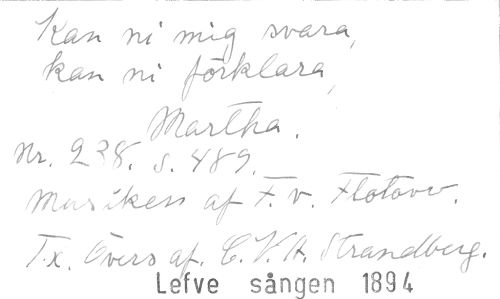 Kan ni mig svara,
kan ni förklara,
Martha.
Nr. 238. s. 489.
Musiken af F. v. Flotow.
Tx. Övers af. C. V. A. Strandberg.
Lefve sången 1894